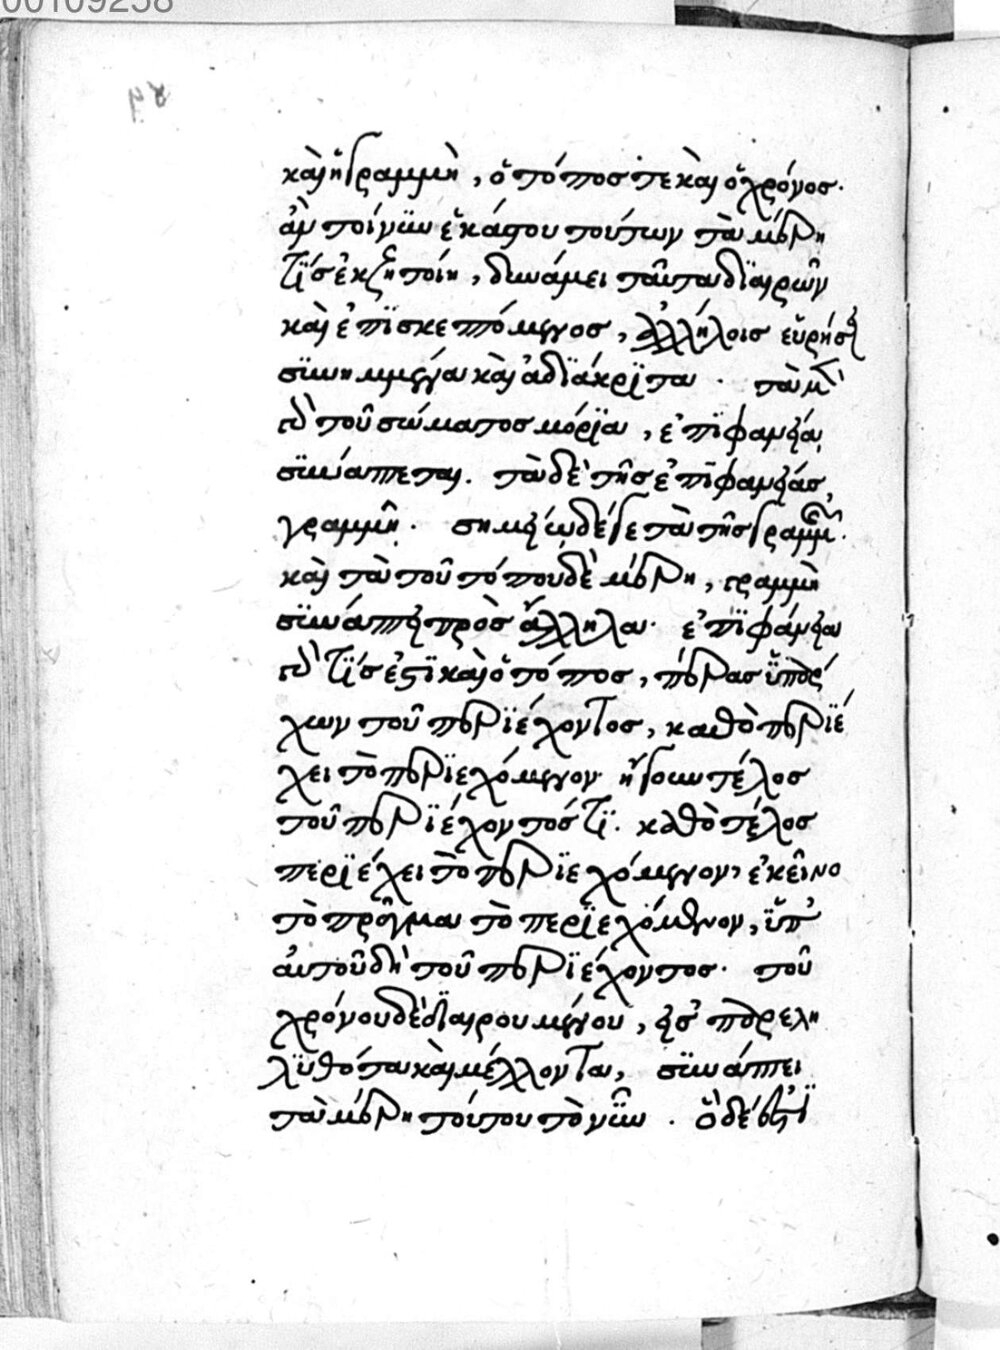 00109258
καὶ ἡ γραμμὴ, ὁ τόπος τε καὶ ὁ χρόνος·
ἂν τοίνυν ἑκάστου τούτων τὰ μέρη
τίς ἐκζητοίη, δυνάμει ταῦτα διαιρῶν
καὶ ἐπισκεπτόμενος, ἀλλήλοις εὑρήσει
συνημμένα καὶ ἀδιάκριτα · τὰ μὲν
τοῦ σώματος μόρια, ἐπιφανείᾳ
συνάπτεται. τὰ δὲ τῆς ἐπιφανείας,
γραμμῇ · σημείῳ δέ γε τὰ τῆς γραμμῆς.
καὶ τὰ τοῦ τόπου δὲ μέρη, γραμμὴ
συνάπτει πρὸς ἄλληλα · ἐπιφάνεια
τίς ἐστι καὶ ὁ τόπος, πέρας ὑπάρ
χων τοῦ περιέχοντος, καθὸ περιέ
χει τὸ περιεχόμενον ἤγουν τέλος
τοῦ περιέχοντός τι · καθὸ τέλος
περιέχει τὸ περιεχόμενον, ἐκεῖνο
τὸ πρᾶγμα τὸ περιεχόμενον, ὑπ'
αὐτοῦ δὴ τοῦ περιέχοντος · τοῦ
χρόνου δὲ διαιρουμένου, εἰς παρελη
λυθότα καὶ μέλλοντα, συνάπτει
τὰ μέρη τούτου τὸ νῦν · ὁ δέ